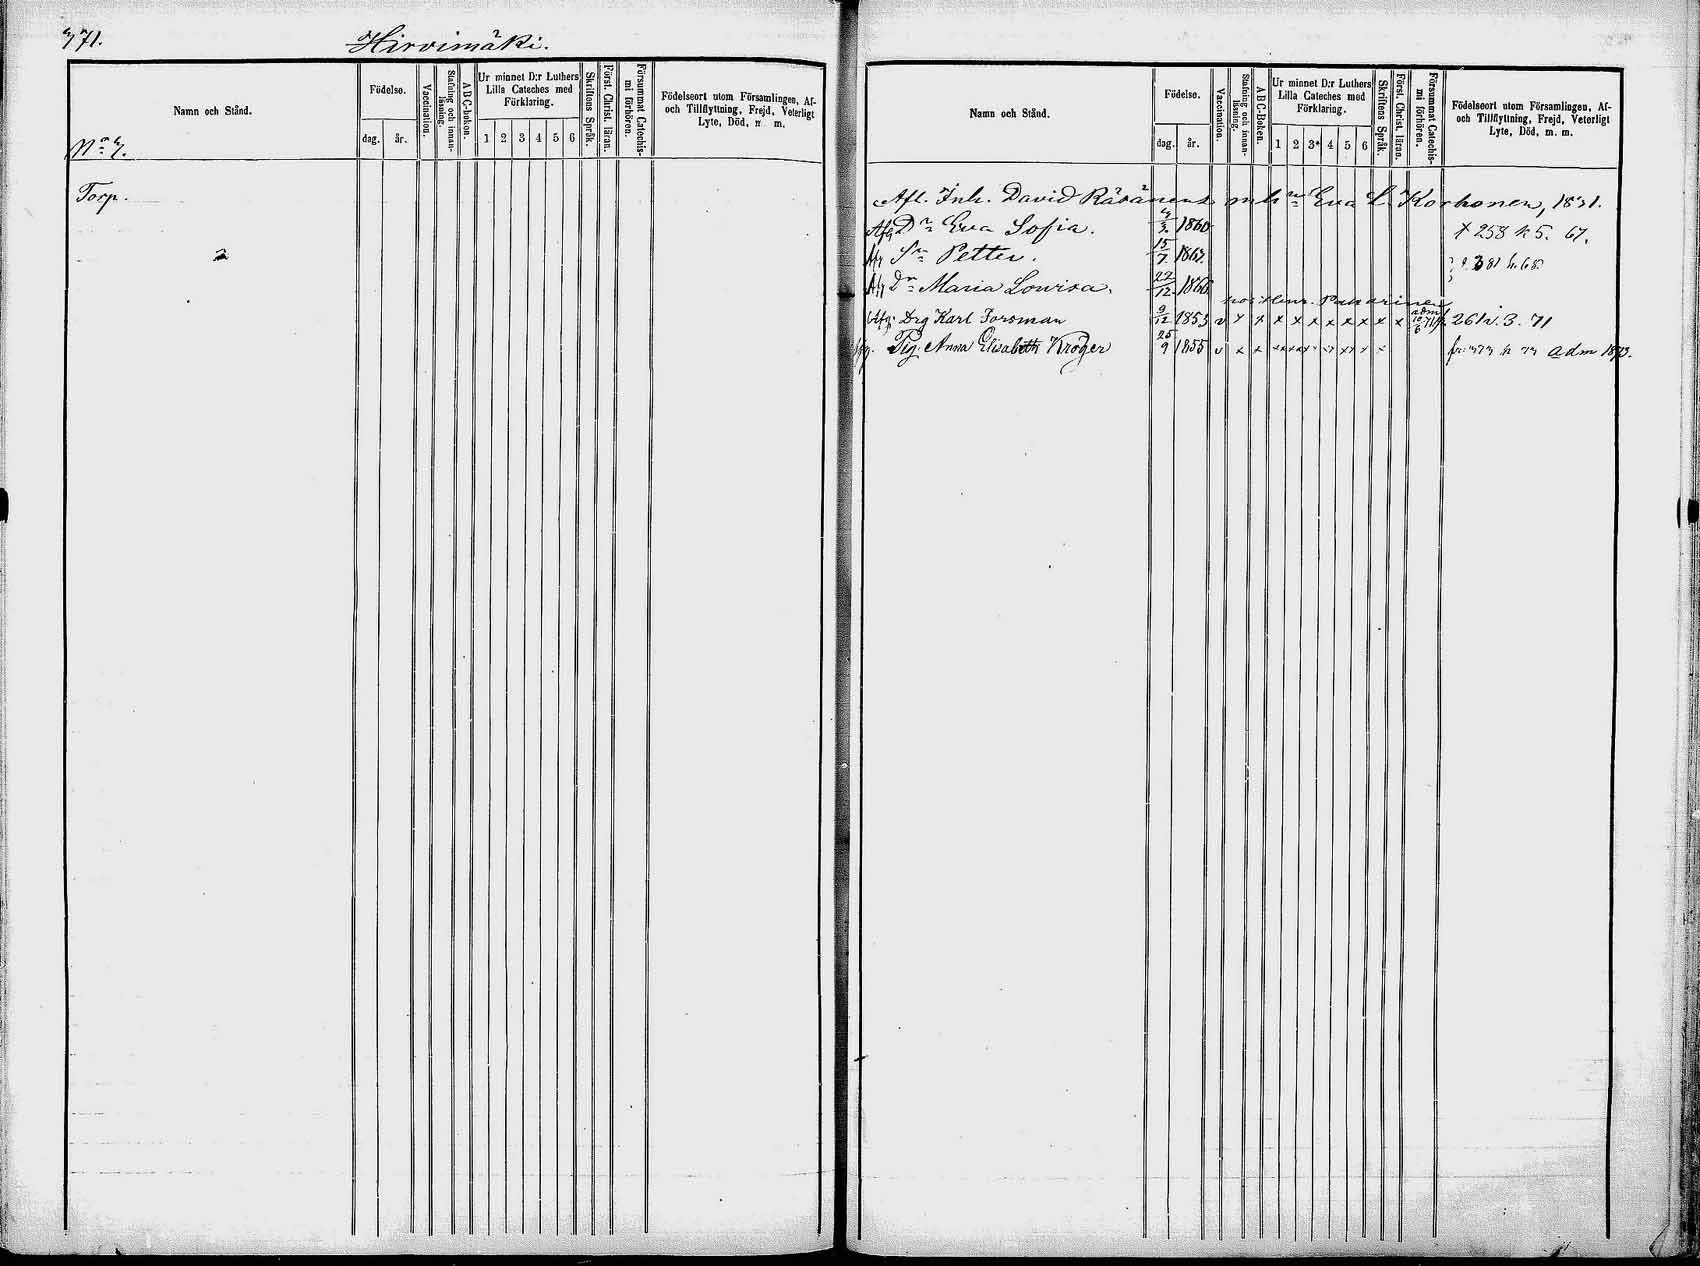 771.
Hirvimäki.
Namn och Stånd.
Födelse.
dag.
år.
Vaccination.
Stafning och innan-läsning.
A B C-boken.
Ur minnet D:r Luthers Lilla Cateches med Förklaring.
1 2 3 4 5 6
Skriftens Språk.
Först. Christ. läran.
Försummat Catechis-mi förhören.
Födelseort utom Församlingen, Af- och Tillflyttning, Frejd, Veterligt Lyte, Död, m. m.
Torp.
Namn och Stånd.
Födelse.
dag.
år.
Vaccination.
Stafning och innan-läsning.
A B C-Boken.
Ur minnet D:r Luthers Lilla Cateches med Förklaring.
1 2 3 4 5 6
Skriftens Språk.
Först. Christ. läran.
Försummat Catechis-mi förhören.
Födelseort utom Församlingen, Af- och Tillflyttning, Frejd, Veterligt Lyte, Död, m. m.
Afl. Inh. David Räsänens enk:a Eva L. Korhonen, 1831.
Afg Dr Eva Sofia. 4/3. 1860 + 258 k 5. 67.
Afg Sn Petter. 15/7. 1862
Afg Dr Maria Lovisa. 22/12. 1866
Afg. Drg Karl Forsman 9/12 1853 v x x x x x x x x x x adm 10/6 71 261 h. 3. 71
Afg. Pig. Anna Elisabeth Kröger 25/9 1855 v x x x x x x x x adm 1873.